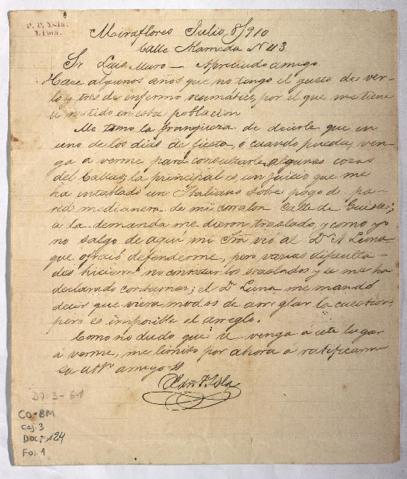 Lima.
Miraflores Julio, 8/910
Calle Alameda Nº 43
Sr Luis Muro - Apreciado amigo
Hace algunos años que no tengo el gusto de ver-
lo y soy de enfermo reumático, por el que me tiene
U. metido en esta poblacion
Me tomo la franqueza de decirle que en
uno de los dias de fiesta, o cuando pueda, ven-
ga a verme para consultarle algunas cosas
del Callao, la principal es un juicio que me
ha entablado un Italiano sobre pago de pa-
red medianera de mi corralon Calle de
a la demanda me dieron traslado, y como yo
no salgo de aqui mi vió al Dr N Luna
que ofreció defenderme, pero varias dificulta-
des hicieron no contestar los traslados y se me ha
declarado contumaz; el Dr Luna me mandó
decir que viera modos de arreglar la cuestion
pero es imposible el arreglo.
Como no dudo que U. venga á este lugar
á verme, me limito por ahora á ratificarme
su atto amigo S
D3-3-61
CO-BM
Caj. 3
Doc. 124
Fol. 1